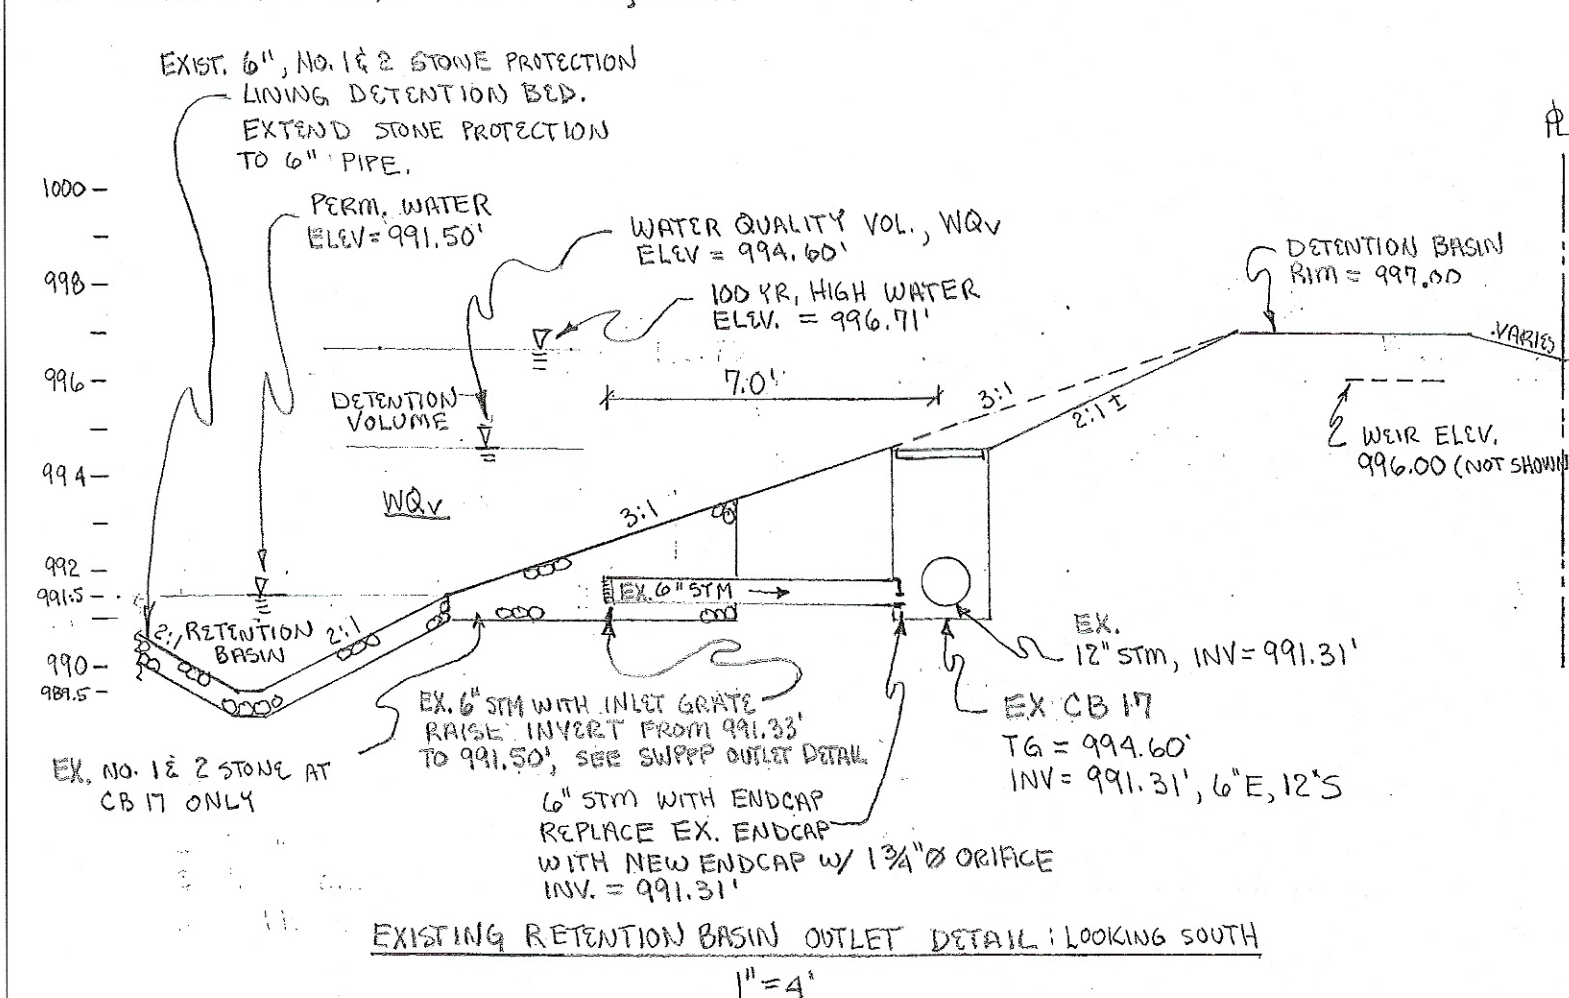 EXIST. 6", NO. 1 & 2 STONE PROTECTION
LINING DETENTION BED.
EXTEND STONE PROTECTION
TO 6" PIPE.
PL
1000
998
996
994
992
991.5
990
989.5
PERM. WATER
ELEV = 991.50'
WATER QUALITY VOL., WQv
ELEV = 994.60'
100 YR, HIGH WATER
ELEV. = 996.71'
DETENTION BASIN
RIM = 997.00
VARIES
DETENTION
VOLUME
7.0'
3:1
2:1 ±
WEIR ELEV.
996.00 (NOT SHOWN
WQv
3:1
EX. 6" STM
2:1
RETENTION
BASIN
2:1
EX.
12" STM, INV = 991.31'
EX. 6" STM WITH INLET GRATE
RAISE INVERT FROM 991.33'
TO 991.50', SEE SWPPP OUTLET DETAIL
EX CB 17
TG = 994.60'
INV = 991.31', 6"E, 12"S
EX. NO. 1 & 2 STONE AT
CB 17 ONLY
6" STM WITH ENDCAP
REPLACE EX. ENDCAP
WITH NEW ENDCAP W/ 1 3/4" Ø ORIFICE
INV. = 991.31'
EXISTING RETENTION BASIN OUTLET DETAIL: LOOKING SOUTH
1" = 4'